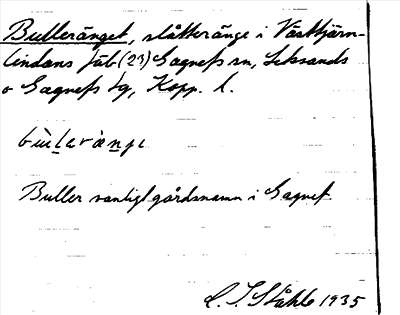 Bulleränget, slåtteränge i Västtjärn-
lindans fäb (23) Gagnefs sn, Leksands
o Gagnefs tg, Kopp. l.
Buller vanligt gårdsnamn i Gagnef
Ståhle 1935